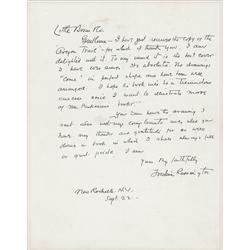 Little Brown & Co.
Gentlemen - I have just received the copy of the
Oregon Trail - for which I thank you. I am
delighted with it. To my mind it is the best cover
I have ever seen. It's absolute. The drawings
"come" in perfect shape and have been well
arranged. I hope the book will be a tremendous
success since I want to illustrate more
of Mr Parkman's books.
You can have the drawing I
sent also with my compliments and also you
have my thanks and gratitude for so well
done a book in which I shall always feel
a great pride. I am
Yours very faithfully
Frederic Remington
New Rochelle. N.Y.
Sept. 22 -